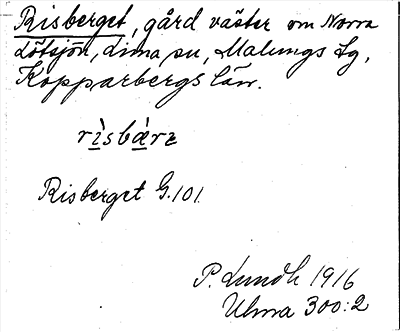 Risberget, gård väster om Norra
Lötsjön, Lima sn, Malungs tg,
Kopparbergs län.
rìsbæ̀rɛ
Risberget G.101
P. Lundh 1916
Ulma 300:2